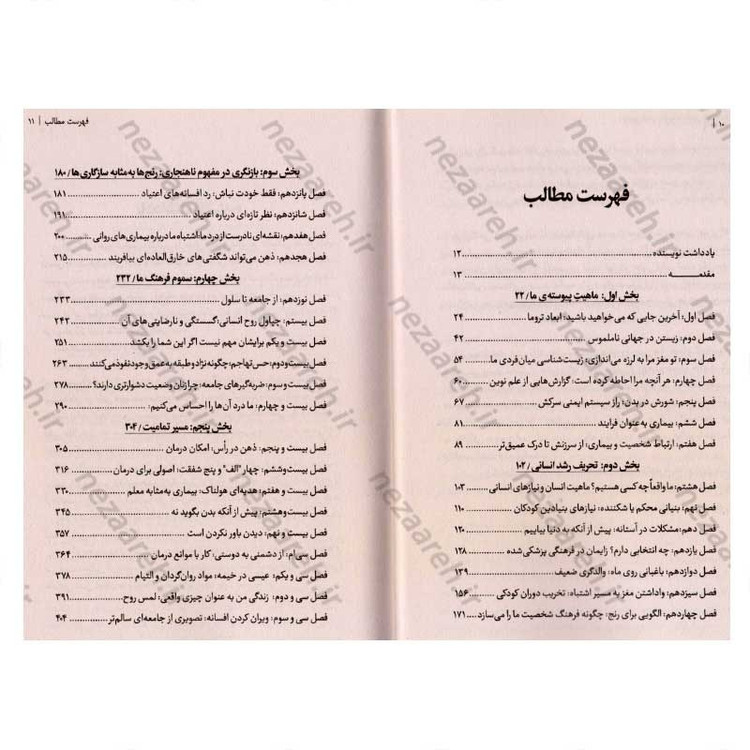 ۱۰ |
فهرست مطالب
یادداشت نویسنده ... ۱۲
مقدمـــه ... ۱۳
بخش اول: ماهیتِ پیوسته‌ی ما/ ۲۲
فصل اول: آخرین جایی که می‌خواهید باشید: ابعاد تروما ... ۲۴
فصل دوم: زیستن در جهانی ناملموس ... ۴۲
فصل سوم: تو مغز مرا به لرزه می‌اندازی: زیست‌شناسی میان‌فردی ما ... ۵۴
فصل چهارم: هر آنچه مرا احاطه کرده است: گزارش‌هایی از علم نوین ... ۶۰
فصل پنجم: شورش در بدن: راز سیستم ایمنی سرکش ... ۶۷
فصل ششم: بیماری به‌عنوان فرایند ... ۸۱
فصل هفتم: ارتباط شخصیت و بیماری: از سرزنش تا درک عمیق‌تر ... ۸۹
بخش دوم: تحریف رشد انسانی/ ۱۰۲
فصل هشتم: ما واقعاً چه کسی هستیم؟ ماهیت انسان و نیازهای انسانی ... ۱۰۳
فصل نهم: بنیانی محکم یا شکننده: نیازهای بنیادین کودکان ... ۱۱۰
فصل دهم: مشکلات در آستانه: پیش از آنکه به دنیا بیاییم ... ۱۲۰
فصل یازدهم: چه انتخابی دارم؟ زایمان در فرهنگی پزشکی‌شده ... ۱۲۸
فصل دوازدهم: باغبانی روی ماه: والدگری ضعیف ... ۱۳۹
فصل سیزدهم: واداشتن مغز به مسیر اشتباه: تخریب دوران کودکی ... ۱۵۶
فصل چهاردهم: الگویی برای رنج: چگونه فرهنگ شخصیت ما را می‌سازد ... ۱۷۱
فهرست مطالب | ۱۱
بخش سوم: بازنگری در مفهوم ناهنجاری: رنج‌ها به‌مثابه سازگاری‌ها/ ۱۸۰
فصل پانزدهم: فقط خودت نباش: رد افسانه‌های اعتیاد ... ۱۸۱
فصل شانزدهم: نظر تازه‌ای درباره اعتیاد ... ۱۹۱
فصل هفدهم: نقشه‌ای نادرست از درد ما: اشتباه ما درباره بیماری‌های روانی ... ۲۰۰
فصل هجدهم: ذهن می‌تواند شگفتی‌های خارق‌العاده‌ای بیافریند ... ۲۱۵
بخش چهارم: سموم فرهنگ ما/ ۲۳۲
فصل نوزدهم: از جامعه تا سلول ... ۲۳۳
فصل بیستم: چپاول روح انسانی: گسستگی و نارضایتی‌های آن ... ۲۴۲
فصل بیست و یکم: برایشان مهم نیست اگر این شما را بکشد ... ۲۵۱
فصل بیست و دوم: حس تهاجم: چگونه نژاد و طبقه به عمق وجود نفوذ می‌کنند ... ۲۶۳
فصل بیست و سوم: ضربه‌گیرهای جامعه: چرا زنان وضعیت دشوارتری دارند؟ ... ۲۷۸
فصل بیست و چهارم: ما درد آن‌ها را احساس می‌کنیم: ... ۲۹۰
بخش پنجم: مسیر تمامیت/ ۳۰۴
فصل بیست و پنجم: ذهن در رأس: امکان درمان ... ۳۰۵
فصل بیست‌وششم: چهار "الف" و پنج شفقت: اصولی برای درمان ... ۳۱۶
فصل بیست و هفتم: هدیه‌ای هولناک: بیماری به‌مثابه معلم ... ۳۳۰
فصل بیست‌وهشتم: پیش از آنکه بدن بگوید نه ... ۳۴۵
فصل بیست و نهم: دیدن باور نکردن است ... ۳۵۷
فصل سی‌ام: از دشمنی به دوستی: کار با موانع درمان ... ۳۶۴
فصل سی و یکم: عیسی در خیمه: مواد روان‌گردان و التیام ... ۳۷۸
فصل سی و دوم: زندگی من به عنوان چیزی واقعی: لمس روح ... ۳۹۱
فصل سی و سوم: ویران کردن افسانه: تصویری از جامعه‌ای سالم‌تر ... ۴۰۴
nezaareh.ir